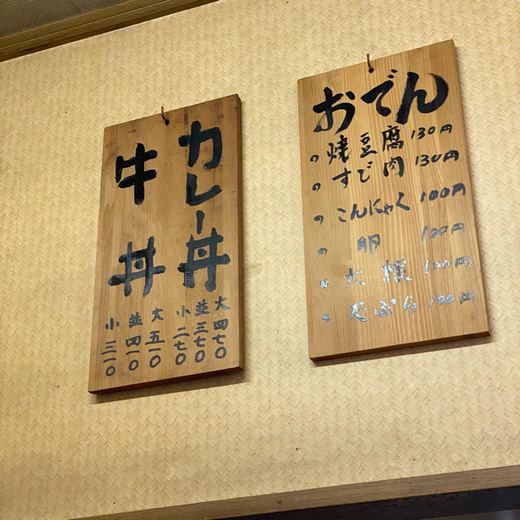 おでん
焼豆腐 130円
すじ肉 130円
こんにゃく 100円
卵 100円
大根 100円
天ぷら 100円
カレー丼
大 四七〇
並 三七〇
小 二七〇
牛丼
大 五一〇
並 四一〇
小 三一〇